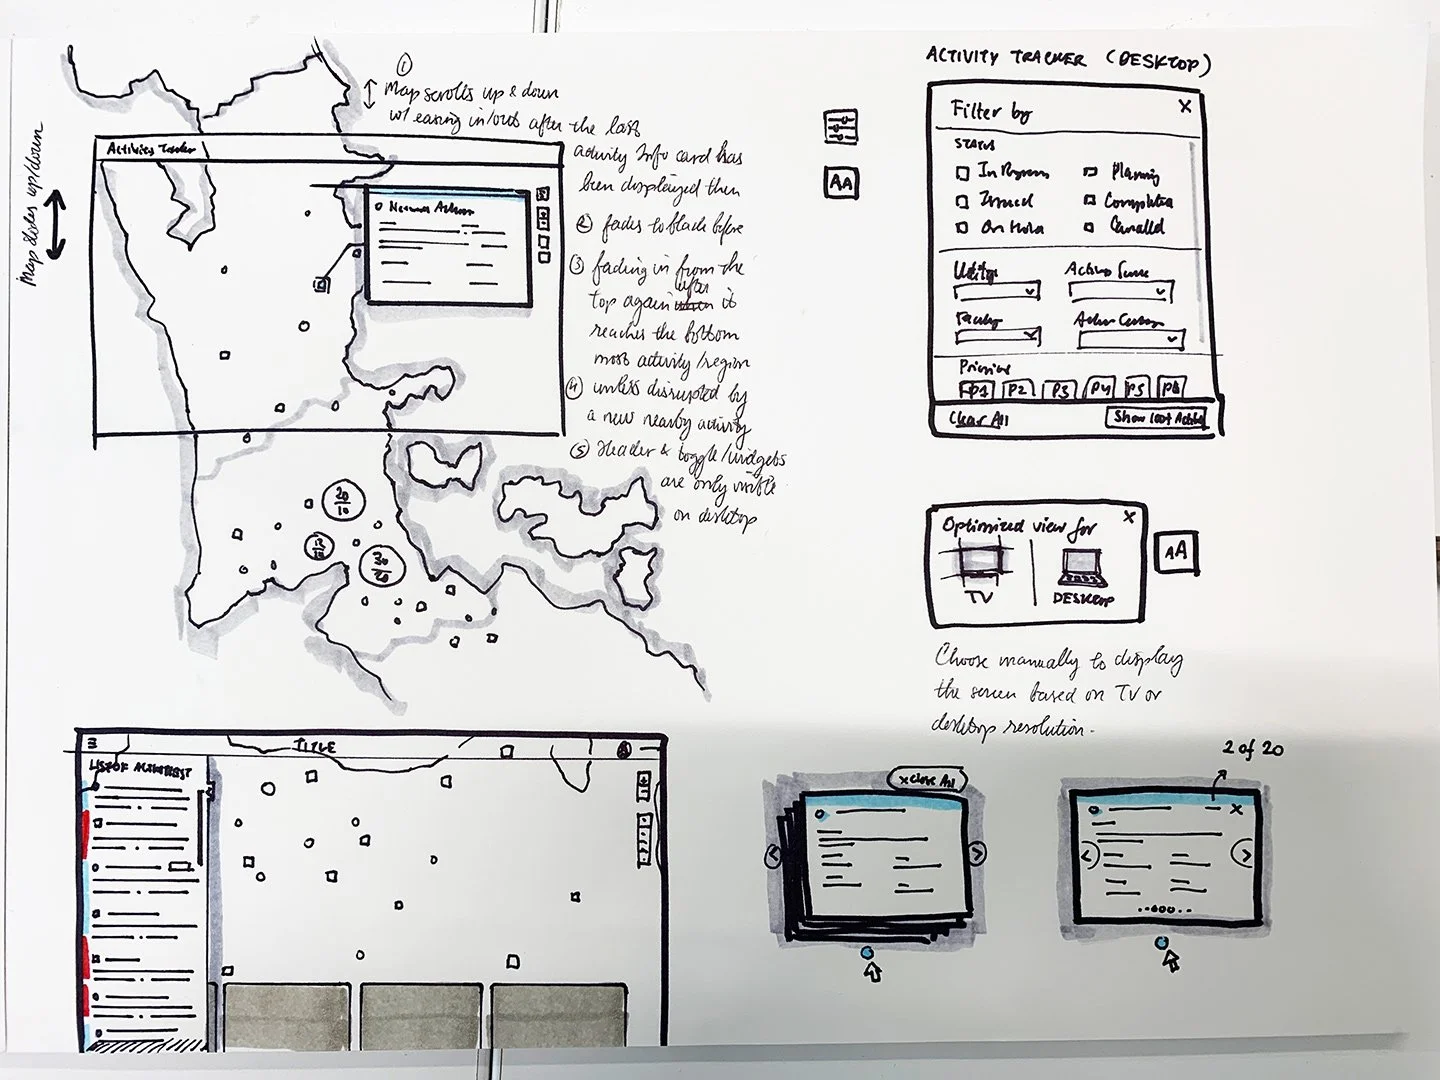 Map slides up/down
①
Map scrolls up & down
w/ easing in/outs after the last
activity Info card has
been displayed then
② fades to black before
③ fading in from the
top again after it
reaches the bottom
most activity/region
④ unless disrupted by
a new nearby activity
⑤ Header & toggle/widgets
are only visible
on desktop
Activity Tracker
20
10
30
20
AA
ACTIVITY TRACKER (DESKTOP)
Filter by X
STATUS
In Progress Planning
Issued Completed
On Hold Cancelled
Utility
Facility
P1 P2 P3 P4 P5 P6
Clear All Show
Optimized view for X
TV DESKTOP
AA
Choose manually to display
the screen based on TV or
desktop resolution.
TITLE
LIST OF
x Close All
2 of 20
X